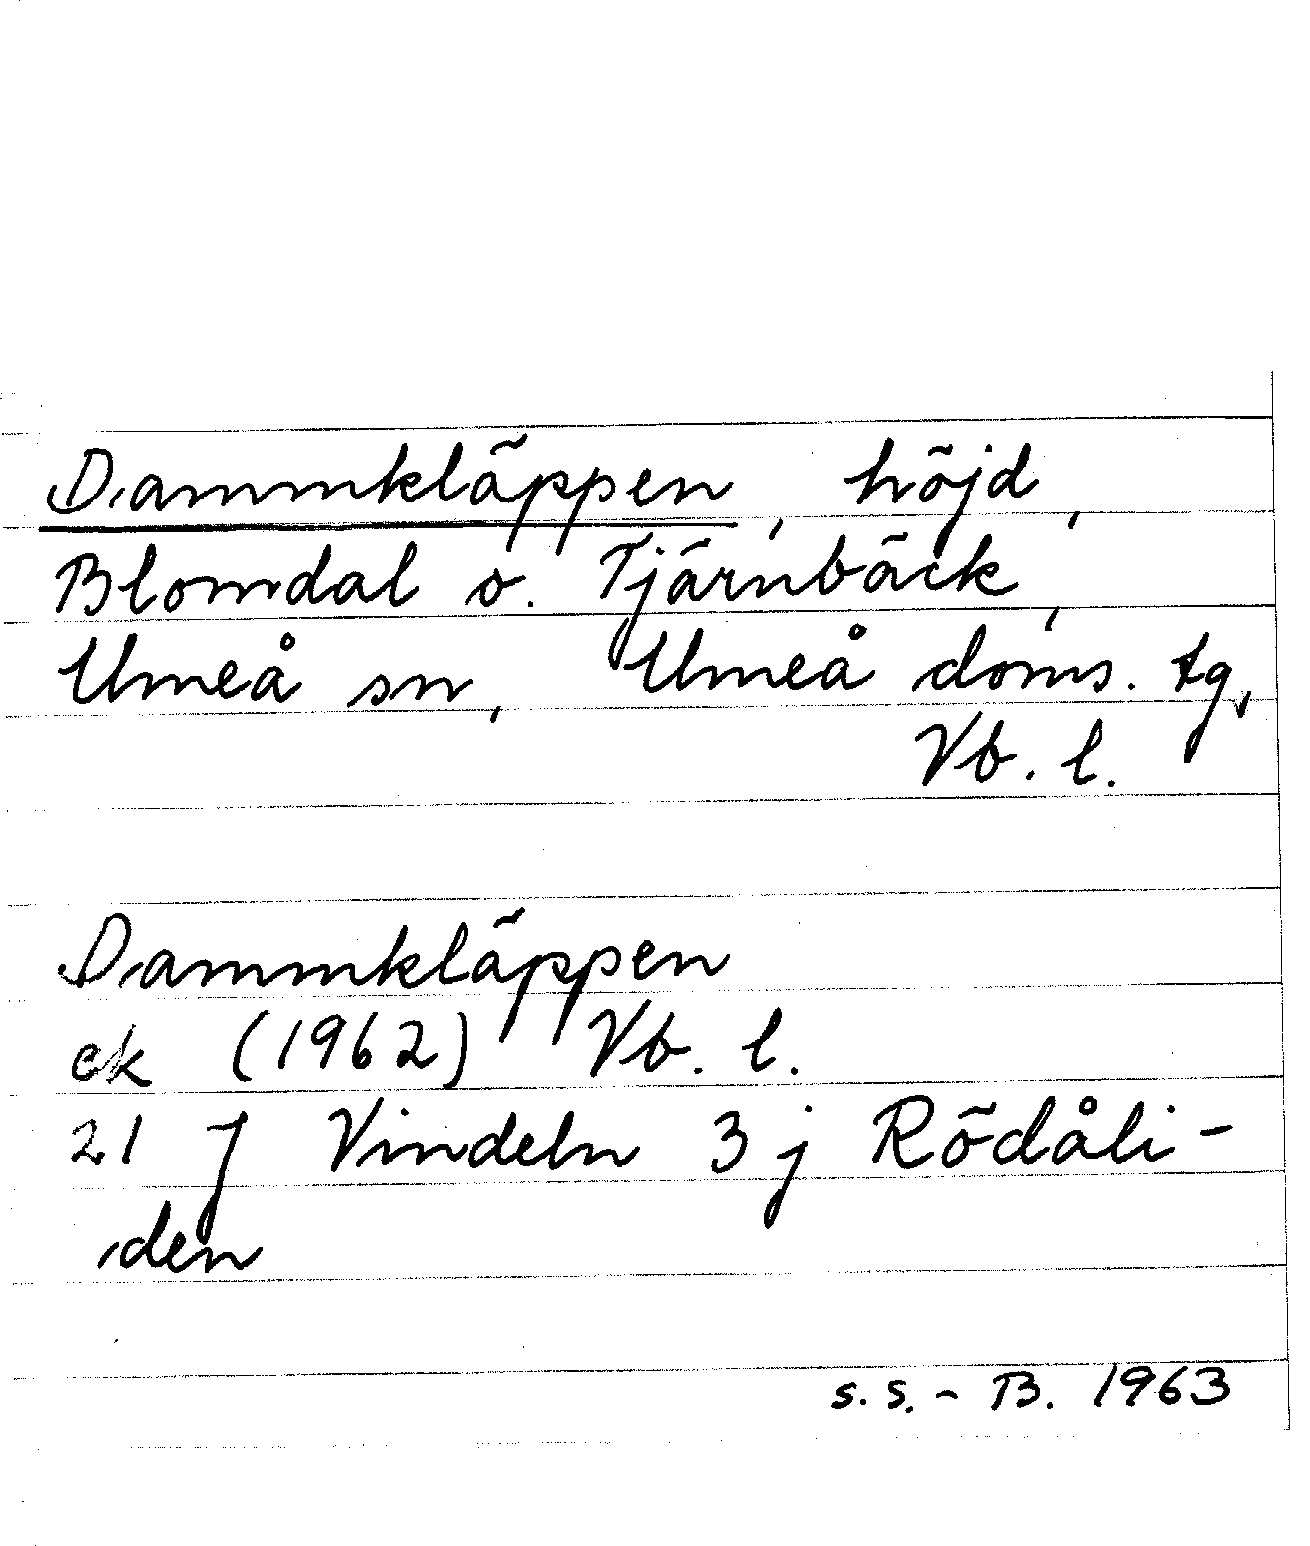 Dammkläppen, höjd,
Blomdal o. Tjärnbäck,
Umeå sn, Umeå doms. tg,
Vb. l.
Dammkläppen
ek (1962) Vb. l.
21 J Vindeln 3 j Rödåli-
den
S. S. - B. 1963